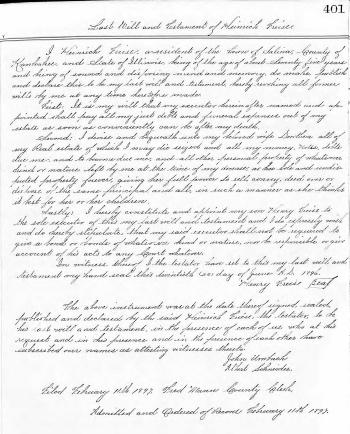 401
Last Will and Testament of Heinrich Friese
I Heinrich Friese, a resident of the Town of Salina, County of
Kankakee and State of Illinois, being of the age of about Seventy five years
and being of sound and disposing mind and memory, do make, publish
and declare this to be my last will and testament, hereby revoking all former
wills by me at any time heretofore made.
First. It is my will that my executor hereinafter named and ap-
pointed shall pay all my just debts and funeral expenses out of my
estate as soon as conveniently can be after my death.
Second, I devise and bequeath unto my beloved wife all of
my Real estate of which I may die seized and all my money, notes, bills
due me, and to become due me, and all other personal property of whatsoever
kind or nature left by me at the time of my decease, as her sole and undis-
puted property forever, giving her full power to sell, convey, deed or
dispose of the same principal and all, in such a manner as she thinks
is best for her or her children.
Lastly. I hereby constitute and appoint my son Henry Friese to
be sole executor of this my last will and testament and I do expressly will
and do hereby stipulate, that my said executor shall not be required to
give a bond or bonds of whatsoever kind or nature, nor be responsible or give
account of his acts to any Court whatever.
In witness whereof I the testator have set to this my last will and
testament my hand and seal this day of June A.D. 1896.
Henry Friese Seal
The above instrument was at the date thereof signed, sealed
published and declared by the said Heinrich Friese, the testator, to be
his last will and testament, in the presence of each of us who at his
request and in his presence and in the presence of each other have
subscribed our names as attesting witnesses thereto.
John
Albert Schneider
Filed February 11th 1897. County Clerk
Admitted and Ordered of Record February 11th 1897.